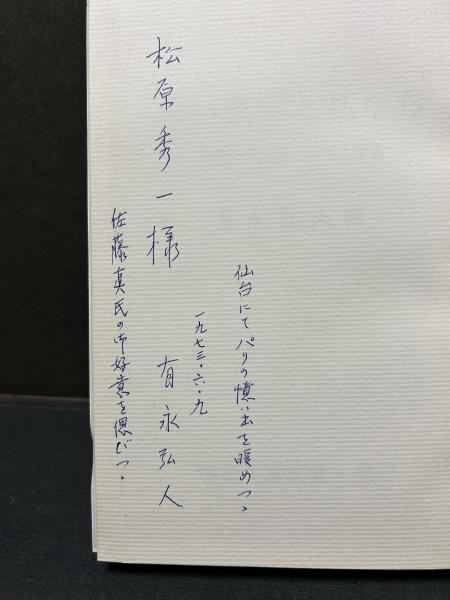 仙台にてパリの憶い出を暖めつゝ
一九七三・六・九
松原秀一様
有永弘人
佐藤真氏の御好意を偲びつゝ